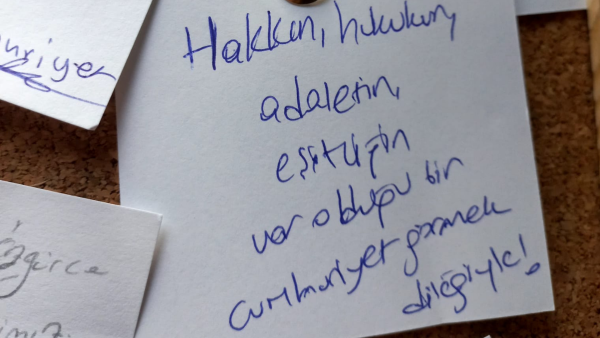 uriyet
Hakkın, hukukun,
adaletin,
eşitliğin
var olduğu bir
cumhuriyet görmek
dileğiyle!
özgürce